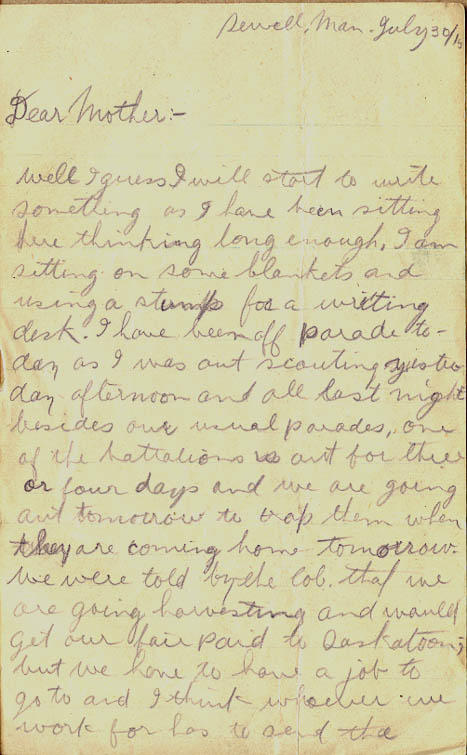 Sewell, Man. July 30/15
Dear Mother:-
well I guess I will start to write
something as I have been sitting
here thinking long enough, I am
sitting on some blankets and
using a stump for a writing
desk. I have been off parade to-
day as I was out scouting yester
day afternoon and all last night
besides our usual parades, one
of the battalions is out for three
or four days and we are going
out tomorrow to trap them when
they are coming home tomorrow.
We were told by the Cob. that we
are going harvesting and would
get our fair paid to Saskatoon;
but we have to have a job to
go to and I think whoever we
work for has to send the